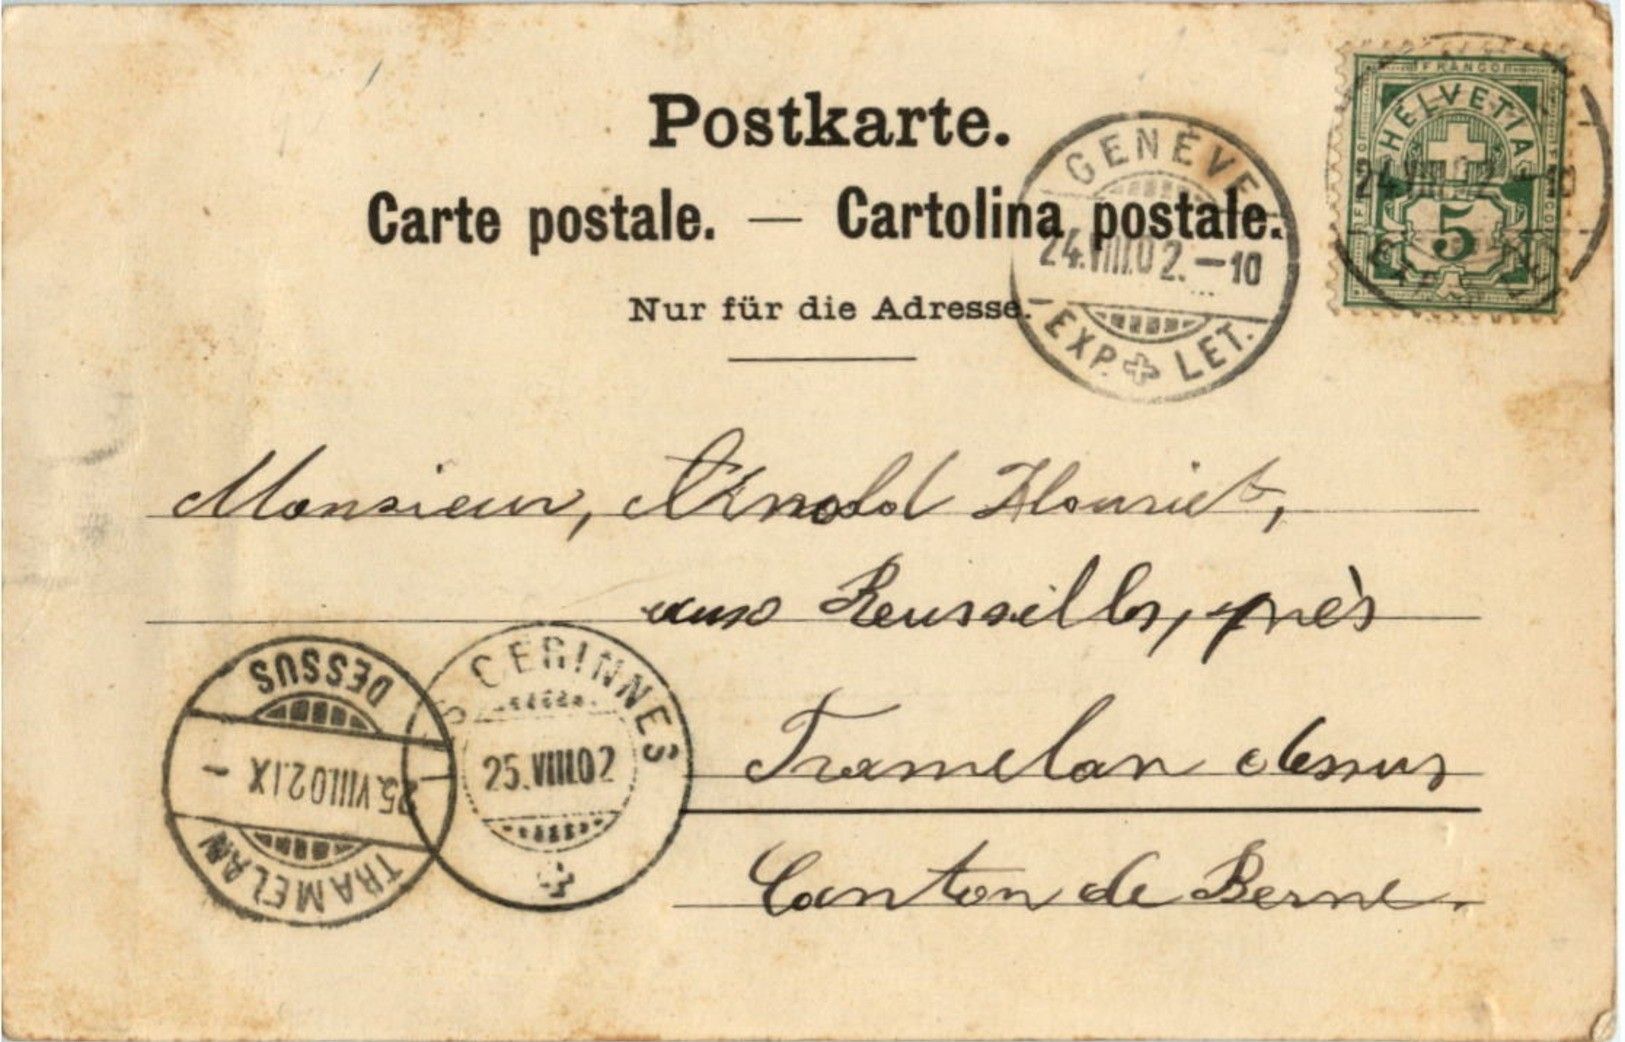 Postkarte.
Carte postale. — Cartolina postale.
Nur für die Adresse.
GENÈVE
24.VIII.02.—10
EXP. LET.
FRANCO
HELVETIA
5
24.VIII.02.—10
Monsieur, Arnold Houriet,
aux Reussilles, près
Tramelan dessus
Canton de Berne.
DESSUS
25.VIII.02.IX —
TRAMELAN
S CERINNES
25.VIII.02